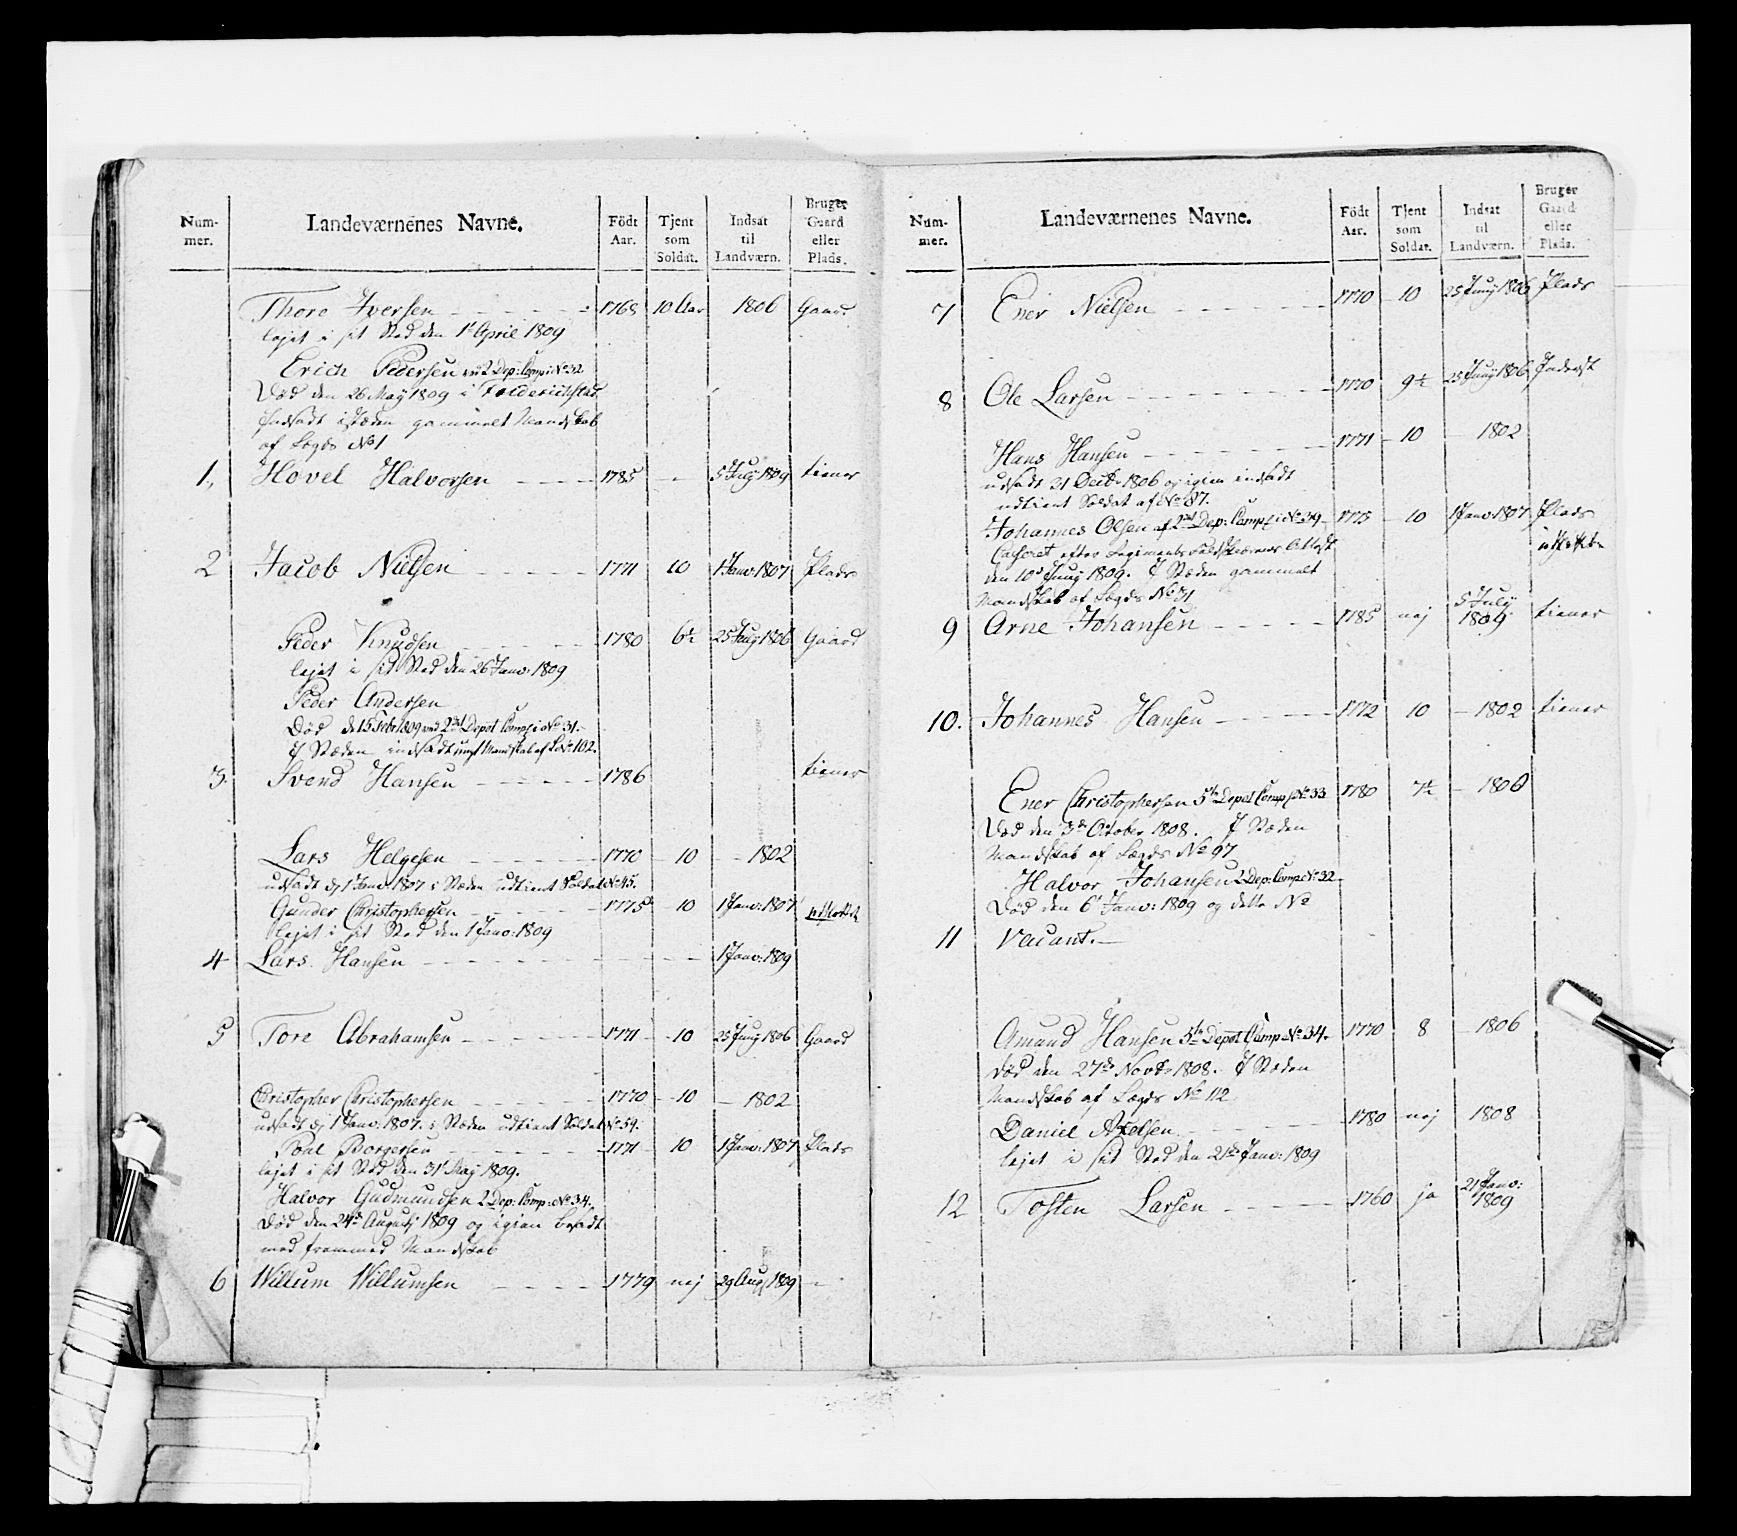 Num-
mer.
Landeværnenes Navne.
Födt
Aar.
Tjent
som
Soldat.
Indsat
til
Landværn.
Bruger
Gaard
eller
Plads.
Thore Iversen 1768 10 Aar 1806 Gaard
lejet i sit Sted den 1t April 1809
Erich Pedersen ved 2 Dep: Comp: No 32
Död den 26 May 1809 i Friderichstad
Indsadt istæden gammelt Mandskab
af Lægds No 1
1. Hovel Halvorsen 1785 5 July 1809 tiener
2 Jacob Nielsen 1771 10 1 Janv: 1807 Plads
Peder Knudsen 1780 6½ 25 Juny 1806 Gaard
lejet i sit Sted den 26 Janv: 1809
Peder Andersen
Död d 15 Febr 1809 ved 2den Depot Comp: No 31.
I Stæden indsadt ungt Mandskab af Lo No 102.
3. Svend Hansen 1786 tiener
Lars Helgesen 1770 10 1802
udsadt d 1 Janv: 1807 i Stæden udtient Soldat No 45.
Gunder Christophersen 1775 10 1 Janv: 1807 udflöttet
lejet i sit Sted den 1 Janv: 1809
4 Lars Hansen 1 Janv: 1809
5 Tore Abrahamsen 1771 10 25 Juny 1806 Gaard
Christopher Christophersen 1770 10 1802
udsadt d 1 Janv: 1807. i Stæden udtient Soldat No 54.
Povl Borgersen 1771 10 1 Janv: 1807 Plads
lejet i sit Sted den 31 May 1809.
Halvor Gudmundsen 2 Dep: Comp: No 34.
Död den 24d Augustj 1809 og igien besadt
med fremmed Mandskab
6 Willum Willumsen 1779 nej 29 Aug 1809
Num-
mer.
Landeværnenes Navne.
Födt
Aar.
Tjent
som
Soldat.
Indsat
til
Landværn.
Bruger
Gaard
eller
Plads.
7 Ener Nielsen 1770 10 25 Juny 1806 Plads
8 Ole Larsen 1770 9½ 25 Juny 1806 Inderst
Hans Hansen 1771 10 1802
udsadt 31 Decbr 1806 og igien indsadt
udtient Soldat af No 87.
Johannes Olsen af 2den Dep: Comp: No 39 1775 10 1 Janv: 1807 Plads
Casseret efter Regiments Attest
den 10d Juny 1809. I Stæden gammelt
Mandskab af Lægds No 31
9 Arne Johansen 1785 nej 5 July 1809 tiener
10. Johannes Hansen 1772 10 1802 tiener
Ener Christophersen 5te Depot Comp: No 33 1780 7½ 1806
Död den 3de October 1808. I Stæden
Mandskab af Lægds No 97
Halvor Johansen 2 Dep: Comp: No 32
Död den 6t Janv: 1809 og dette No
11 Vacant.
Amund Hansen 5te Depot Comp No 34. 1770 8 1806
Död den 27de Novbr 1808. I Stæden
Mandskab af Lægds No 112
Daniel Axelsen 1780 nej 1808
lejet i sit Sted den 21de Janv: 1809
12 Tosten Larsen 1760 ja 21 Janv: 1809